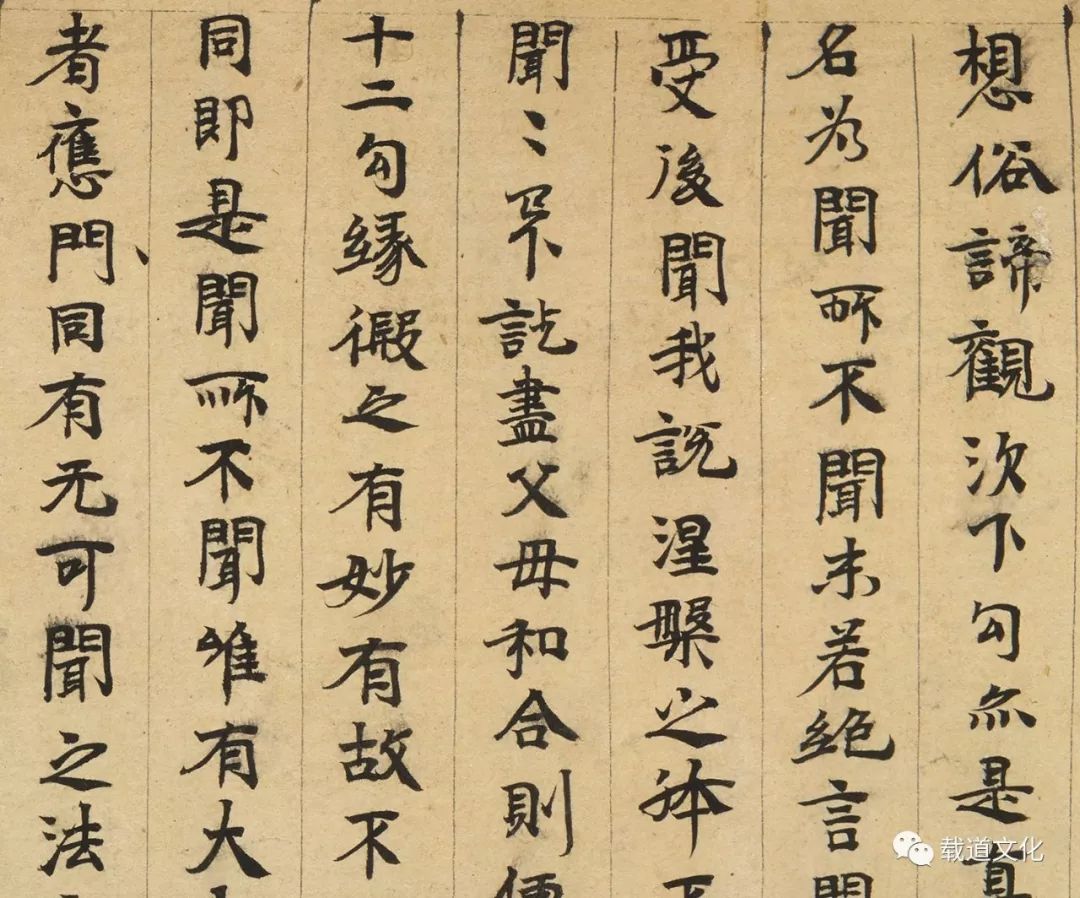 想俗諦觀次下句亦是真
名为聞所不聞未若絶言聞
受後聞我說涅槃之体不
聞〻之下訖盡父母和合則便
十二句緣假之有妙有故不
同即是聞所不聞唯有大
者應門同有无可聞之法
载道文化